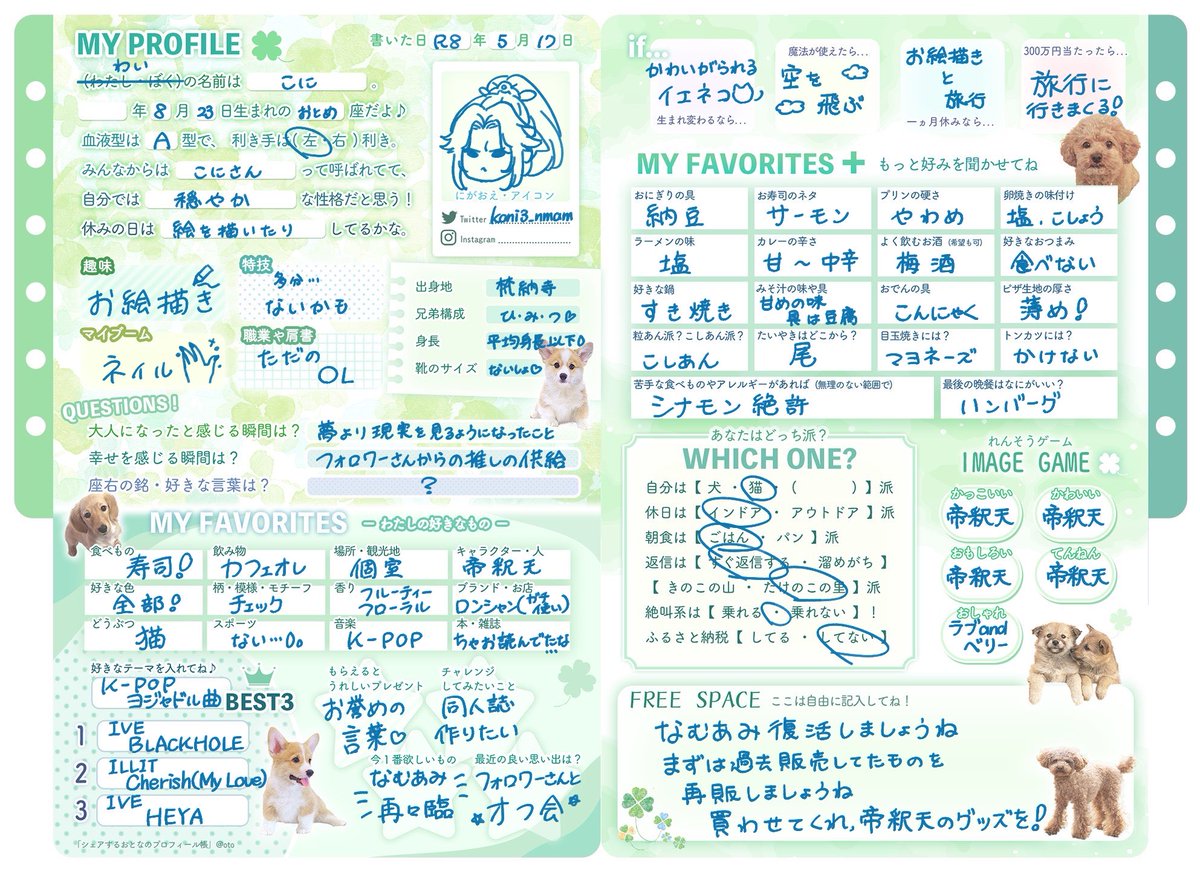 MY PROFILE
書いた日 R8 年 5 月 17 日
わい
(わたし・ぼく)の名前は こに 。
年 8 月 23 日生まれの おとめ 座だよ♪
血液型は A 型で、利き手は(左・右)利き。
みんなからは こにさん って呼ばれてて、
自分では 穏やか な性格だと思う!
休みの日は 絵を描いたり してるかな。
にがおえ・アイコン
Twitter koni3_nmam
Instagram
趣味
お絵描き
特技
多分…
ないかも
マイブーム
ネイル
職業や肩書
ただの
OL
出身地 梵納寺
兄弟構成 ひ・み・つ♡
身長 平均身長以下
靴のサイズ ないしょ♡
QUESTIONS!
大人になったと感じる瞬間は? 夢より現実を見るようになったこと
幸せを感じる瞬間は? フォロワーさんからの推しの供給
座右の銘・好きな言葉は? ?
MY FAVORITES ーわたしの好きなものー
食べもの 寿司!
飲み物 カフェオレ
場所・観光地 個室
キャラクター・人 帝釈天
好きな色 全部!
柄・模様・モチーフ チェック
香り フルーティー
フローラル
ブランド・お店
ロンシャン(ガチ使い)
どうぶつ 猫
スポーツ ない…
音楽 K-POP
本・雑誌 ちゃお読んでたな…
好きなテーマを入れてね♪
K-POP
ヨジャドル曲 BEST3
1 IVE
BLACKHOLE
2 ILLIT
Cherish(My Love)
3 IVE
HEYA
もらえると
うれしいプレゼント
お誉めの
言葉♡
チャレンジ
してみたいこと
同人誌
作りたい
今1番欲しいもの
なむあみ
再々臨
最近の良い思い出は?
フォロワーさんと
オフ会
「シェアするおとなのプロフィール帳」@oto
if...
かわいがられる
イエネコ
生まれ変わるなら…
魔法が使えたら…
空を
飛ぶ
お絵描き
と
旅行
一ヵ月休みなら…
300万円当たったら…
旅行に
行きまくる!
MY FAVORITES + もっと好みを聞かせてね
おにぎりの具 納豆
お寿司のネタ サーモン
プリンの硬さ やわめ
卵焼きの味付け 塩、こしょう
ラーメンの味 塩
カレーの辛さ 甘〜中辛
よく飲むお酒 (希望も可) 梅酒
好きなおつまみ 食べない
好きな鍋 すき焼き
みそ汁の味や具 甘めの味
具は豆腐
おでんの具 こんにゃく
ピザ生地の厚さ 薄め!
粒あん派?こしあん派? こしあん
たいやきはどこから? 尾
目玉焼きには? マヨネーズ
トンカツには? かけない
苦手な食べものやアレルギーがあれば (無理のない範囲で)
シナモン絶許
最後の晩餐はなにがいい?
ハンバーグ
あなたはどっち派?
WHICH ONE?
自分は【 犬 ・ 猫 ( ) 】派
休日は【 インドア ・ アウトドア 】派
朝食は【 ごはん ・ パン 】派
返信は【 すぐ返信する ・ 溜めがち 】
【 きのこの山 ・ たけのこの里 】派
絶叫系は【 乗れる ・ 乗れない 】!
ふるさと納税【 してる ・ してない 】
れんそうゲーム
IMAGE GAME
かっこいい
帝釈天
かわいい
帝釈天
おもしろい
帝釈天
てんねん
帝釈天
おしゃれ
ラブand
ベリー
FREE SPACE ここは自由に記入してね!
なむあみ復活しましょうね
まずは過去販売してたものを
再販しましょうね
買わせてくれ、帝釈天のグッズを!